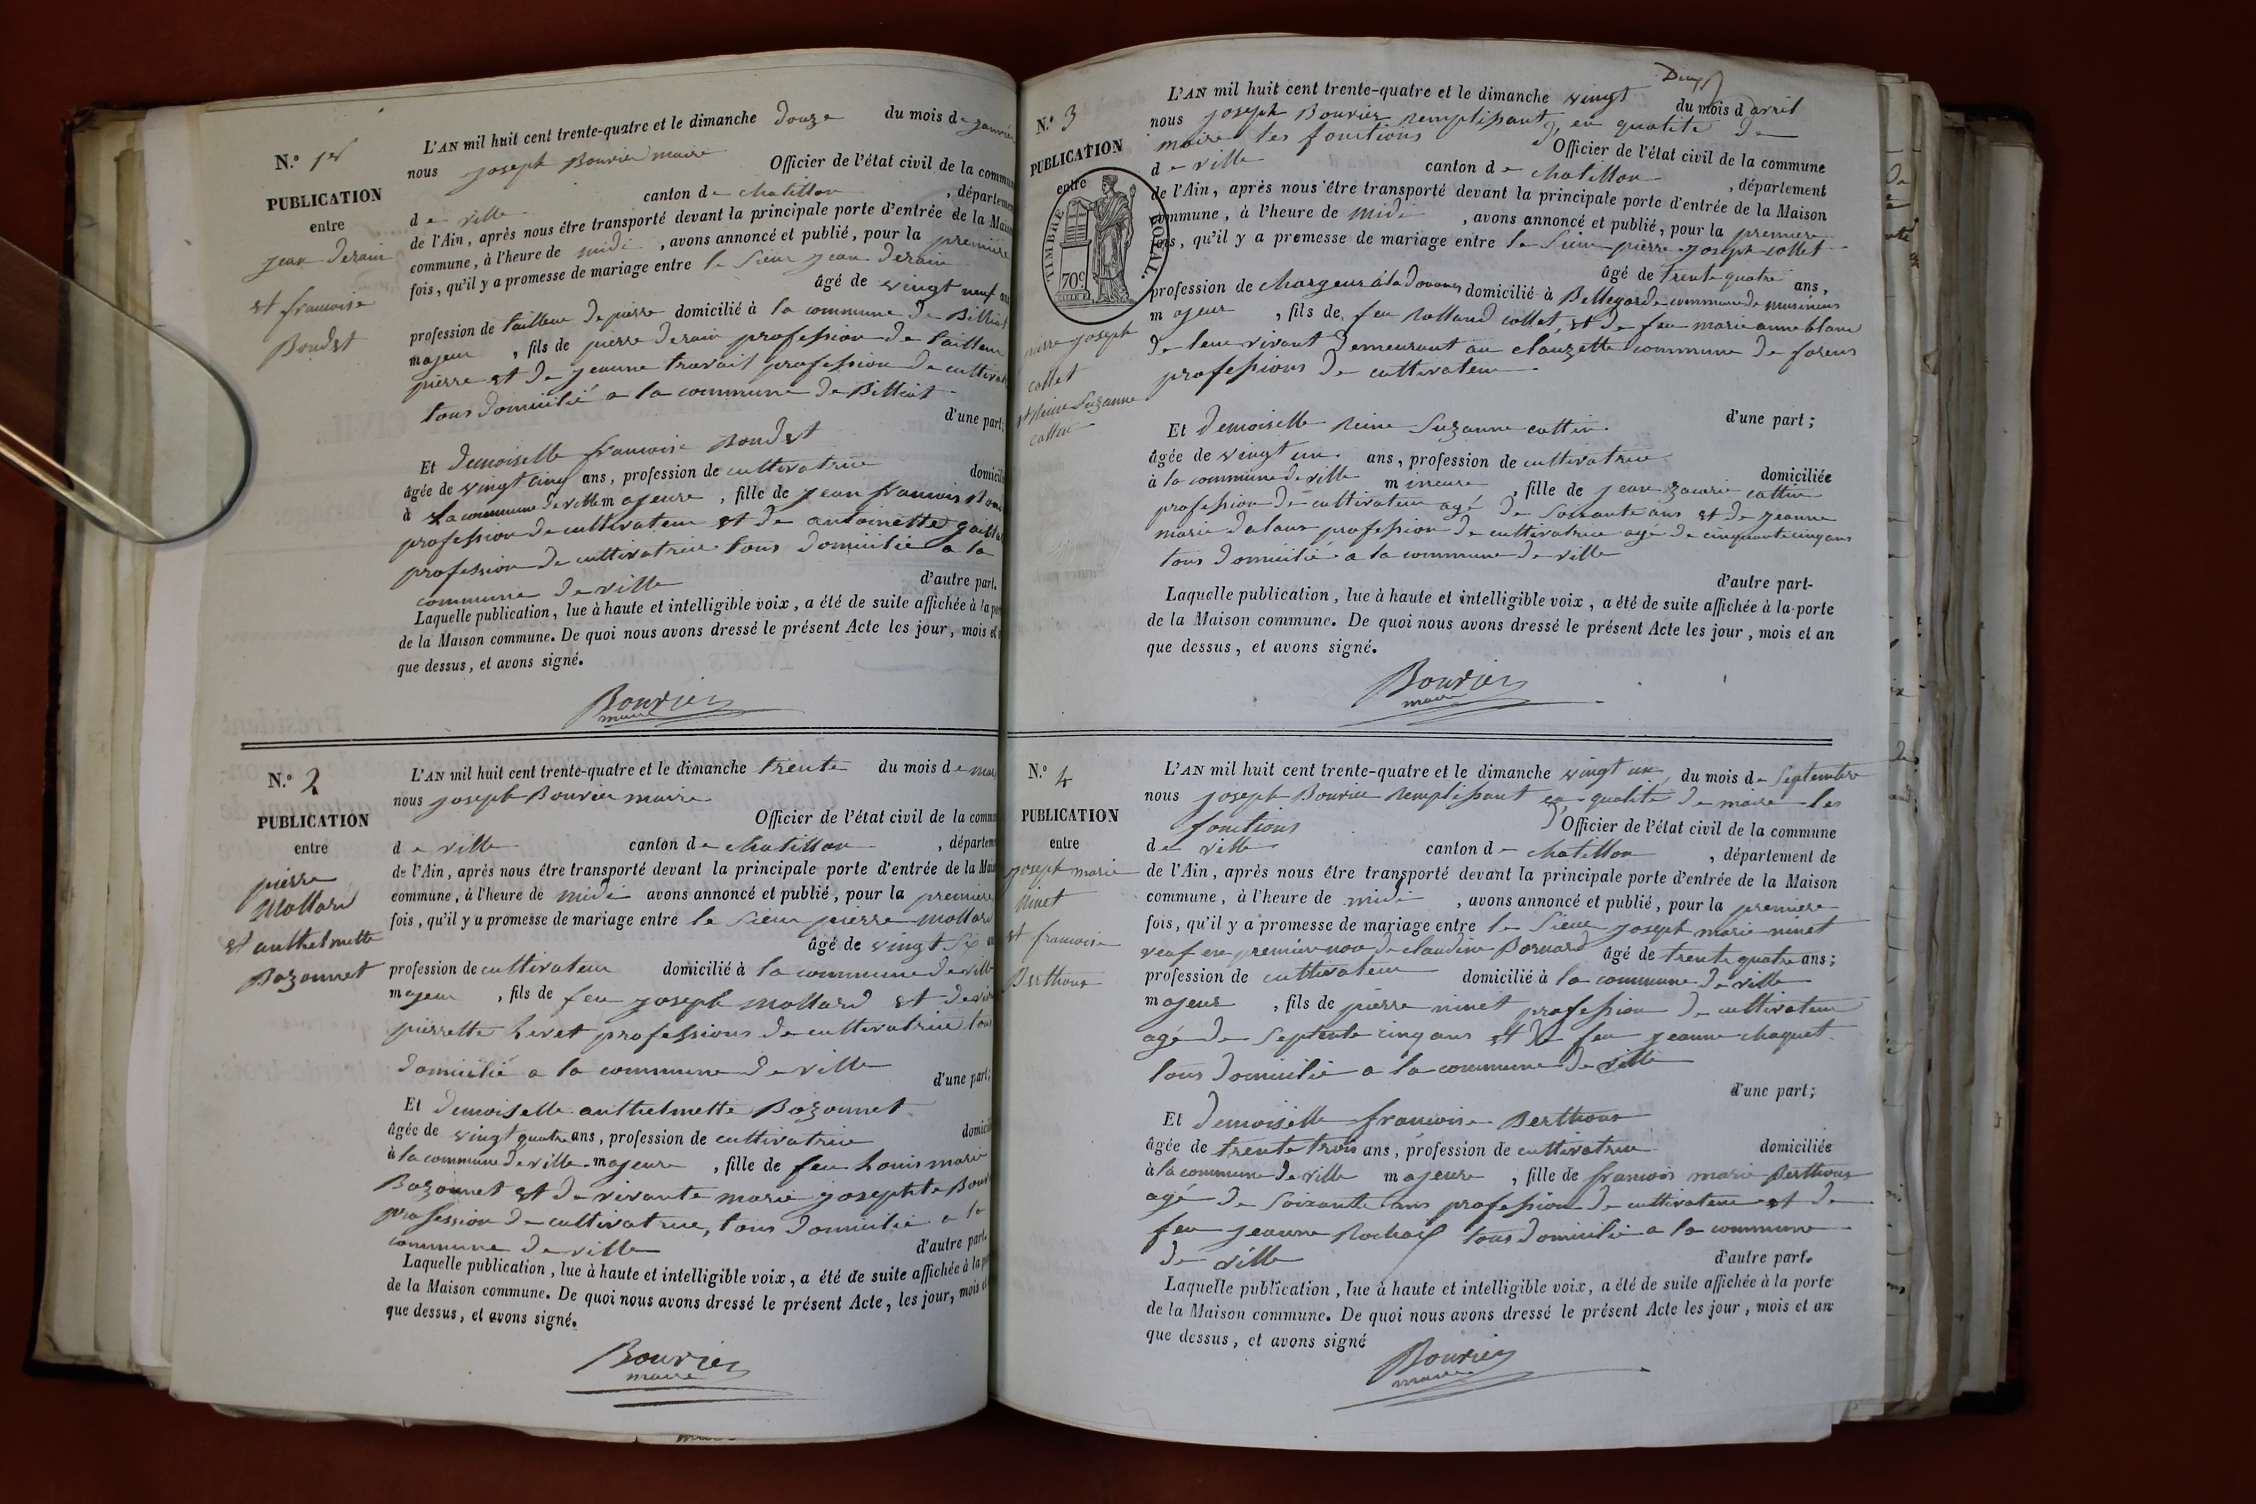 N.º 1er
PUBLICATION
entre
jean Derain
et francoise
Boudet
L'AN mil huit cent trente-quatre et le dimanche douze du mois de janvier
nous joseph Bouvier maire
Officier de l'état civil de la commun
de ville canton de chatillon , départemen
de l'Ain, après nous être transporté devant la principale porte d'entrée de la Mais
commune, à l'heure de midi , avons annoncé et publié, pour la première
fois, qu'il y a promesse de mariage entre le Sieur jean Derain
âgé de vingt neuf an
profession de tailleur de pierre domicilié à la commune de Billiat
majeur , fils de pierre Derain profession de tailleur
pierre et de jeanne travail profession de cultivat
tous domicilié a la commune de Billiat
d'une part;
Et Demoiselle francoise Boudet
âgée de vingt cinq ans, profession de cultivatrice domicili
à La commune de ville majeure , fille de jean francois
profession de cultivateur et de antoinette
profession de cultivatrice tous domicilié a la
commune de ville d'autre part.
Laquelle publication, lue à haute et intelligible voix, a été de suite affichée à la por
de la Maison commune. De quoi nous avons dressé le présent Acte les jour, mois et
que dessus, et avons signé.
Bouvier
maire
N.º 2
PUBLICATION
entre
pierre
Mollard
et anthelmette
Bozonnet
L'AN mil huit cent trente-quatre et le dimanche trente du mois de mar
nous joseph Bouvier maire
Officier de l'état civil de la commu
de ville canton de chatillon , départem
de l'Ain, après nous être transporté devant la principale porte d'entrée de la Mais
commune, à l'heure de midi avons annoncé et publié, pour la première
fois, qu'il y a promesse de mariage entre le Sieur pierre Mollard
âgé de vingt Six an
profession de cultivateur domicilié à la commune de ville
majeur , fils de feu joseph Mollard et de
pierrette heret professions de cultivatrice tous
domicilié a la commune de ville
d'une part;
Et Demoiselle anthelmette Bozonnet
âgée de vingt quatre ans, profession de cultivatrice domicili
à la commune de ville majeure , fille de feu Louis marie
Bozonnet et de vivante marie josephte
profession de cultivatrice, tous domicilié a la
commune de ville d'autre part.
Laquelle publication, lue à haute et intelligible voix, a été de suite affichée à la p
de la Maison commune. De quoi nous avons dressé le présent Acte, les jour, mois et
que dessus, et avons signé.
Bouvier
maire
Deux
N.º 3
PUBLICATION
entre
TIMBRE ROYAL.
70c
pierre joseph
collet
et Reine Suzanne
cottin
L'AN mil huit cent trente-quatre et le dimanche vingt du mois d'avril
nous joseph Bouvier Remplissant, en qualité de
maire les fonctions Officier de l'état civil de la commune
de ville canton de chatillon , département
de l'Ain, après nous être transporté devant la principale porte d'entrée de la Maison
commune, à l'heure de midi , avons annoncé et publié, pour la premiere
fois, qu'il y a promesse de mariage entre le Sieur pierre joseph collet
âgé de trente quatre ans,
profession de chargeur à la Douane domicilié à Bellegarde commune de musinens
majeur , fils de feu Rolland collet, et de feu marie anne blanc
de leur vivant Demeurant au clauzette commune de forens
professions de cultivateur
d'une part;
Et Demoiselle Reine Suzanne cottin.
âgée de vingt un. ans, profession de cultivatrice domiciliée
à la commune de ville mineure , fille de jean zacarie cottin
profession de cultivateur agé de Soixante ans et de jeanne
marie profession de cultivatrice agé de cinquante cinq ans
tous domicilié a la commune de ville
d'autre part-
Laquelle publication, lue à haute et intelligible voix, a été de suite affichée à la porte
de la Maison commune. De quoi nous avons dressé le présent Acte les jour, mois et an
que dessus, et avons signé.
Bouvier
maire
N.º 4
PUBLICATION
entre
joseph marie
Ninet
et francoise
Berthoux
L'AN mil huit cent trente-quatre et le dimanche vingt un du mois de Septembre
nous joseph Bouvier Remplissant en qualité de maire les
fonctions Officier de l'état civil de la commune
de ville canton de chatillon , département de
de l'Ain, après nous être transporté devant la principale porte d'entrée de la Maison
commune, à l'heure de midi , avons annoncé et publié, pour la premiere
fois, qu'il y a promesse de mariage entre le Sieur joseph marie ninet
veuf en premier de claudine Bornard âgé de trente quatre ans;
profession de cultivateur domicilié à la commune de ville
majeur , fils de pierre ninet profession de cultivateur
agé de Septente cinq ans et de feu jeanne choquet
tous domicilié a la commune de ville
d'une part;
Et Demoiselle francoise Berthoux
âgée de trente trois ans, profession de cultivatrice domiciliée
à la commune de ville majeure , fille de francois marie Berthoux
agé de Soixante ans profession de cultivateur et de
feu jeanne tous domicilié a la commune
de ville d'autre part.
Laquelle publication, lue à haute et intelligible voix, a été de suite affichée à la porte
de la Maison commune. De quoi nous avons dressé le présent Acte les jour, mois et an
que dessus, et avons signé
Bouvier
maire